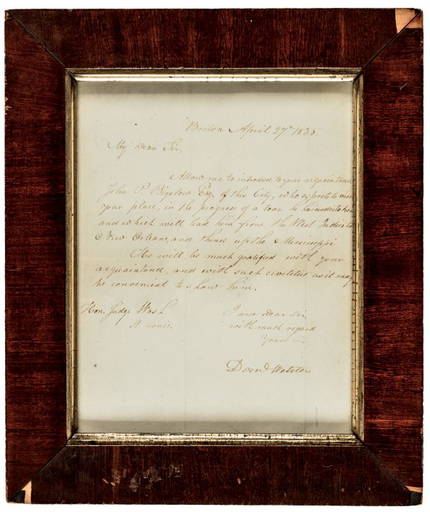 Boston April 27th 183
My Dear Sir,
Allow me to introduce to your acquaintance
John P. Bigelow Esq. of this City, who expects to visit
your place, in the progress of a tour he has undertaken
and which will lead him from the West Indies to
New Orleans, and thence up the Mississippi
He will be much gratified with your
acquaintance, and with such civilities as it may
be convenient to show him.
Hon. Judge Wash
St. Louis.
I am, dear Sir
with much regard
Yours
Danl Webster